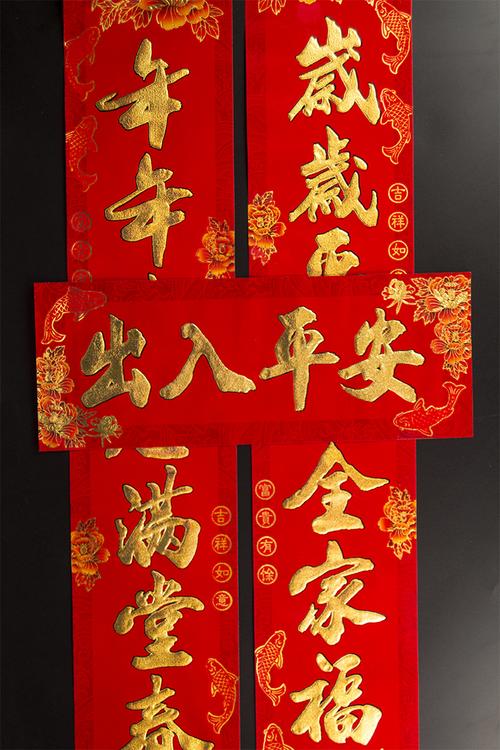 歲歲平
全家福
年年
满堂春
出入平安
吉祥如
富貴有餘
吉祥如意